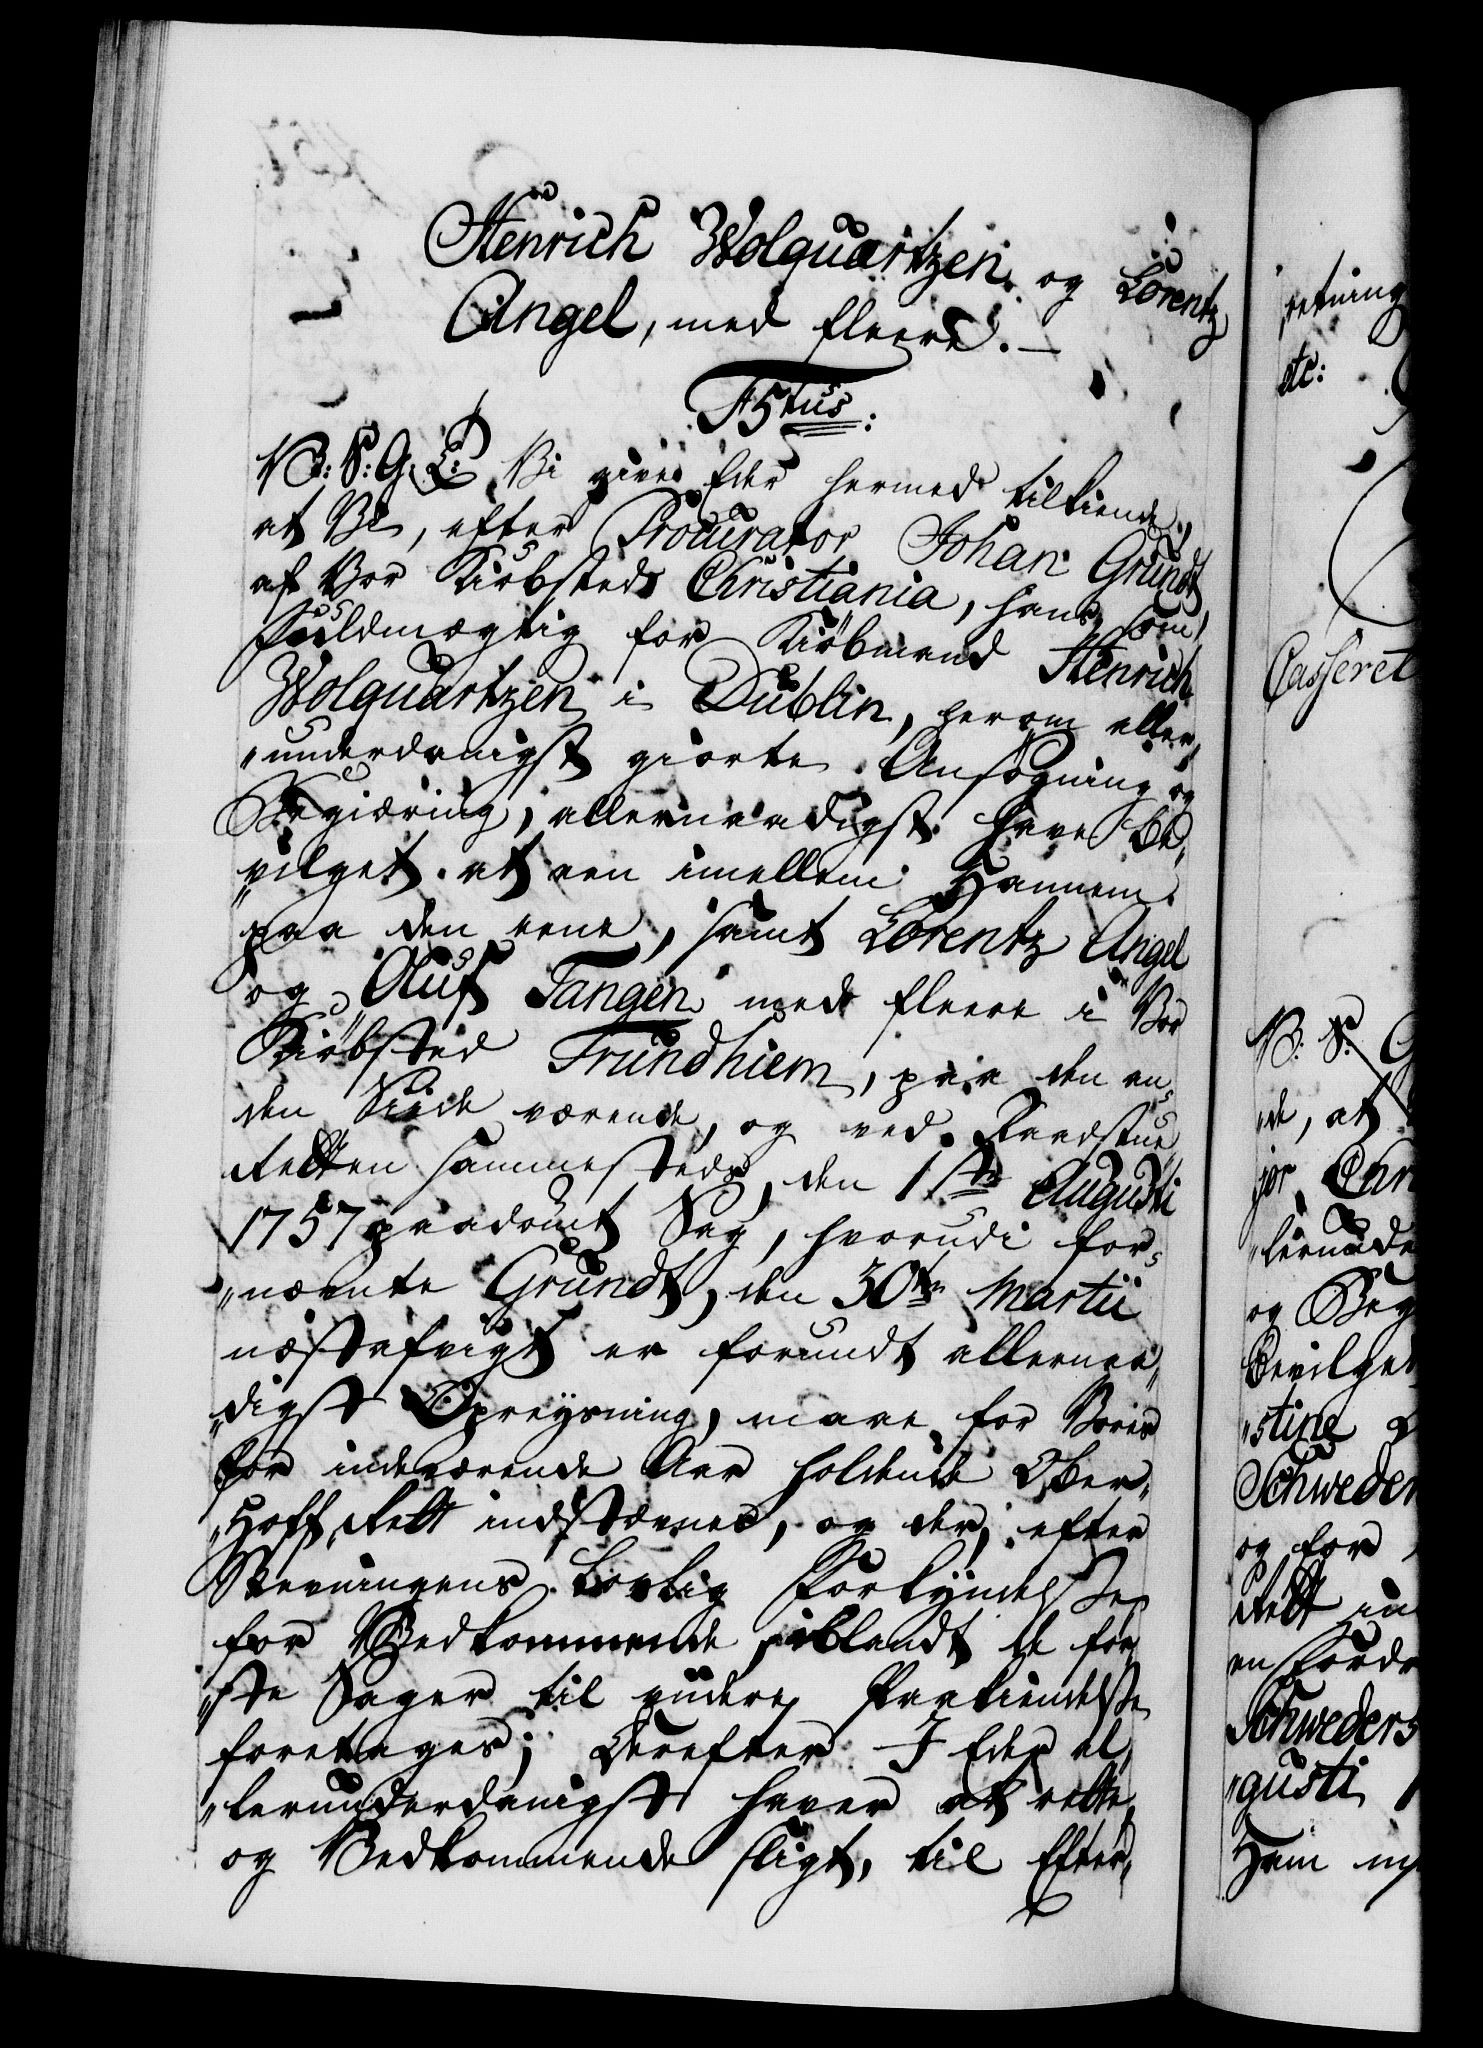 Henrich Wolquartzen og Lorentz
Angel, med fleere.
F5tus:
V: S: G: T: Vi give Eder hermed tilkiende,
at Vi, efter Procurator Johan Grundt
af Vor Kiøbsted Christiania, hans, som
Fuldmægtig for Kiøbmand Henrich
Wolquartzen i Dublin, herom aller„
„underdanigst giorte Ansøgning og
Begiæring, allernaadigst have be„
„vilget at een imellem Hannem
paa den eene, samt Lorentz Angel
og Oluf Tangen med fleere i Vor
Kiøbsted Trundhiem, paa den an„
den Siide værende, og ved Raadstue
Retten sammesteds, den 1ste Augusti
1757 paadømt Sag, hvorudi for„
„nævnte Grundt, den 30te Martii
næstafvigt er forundt allernaa„
„digst Opreysning, maae for Vores
for indeværende Aar holdende Ober„
„Hoff Rett indstævnes, og der, efter
Stevningens Lovlig Forkyndelse
for Vedkommende, iblandt de før„
„ste Sager til endere Paakiendelse
foretages; Derefter I Eder al„
„lerunderdanigst haver at rette,
og Vedkommende sligt, til Efter„
retning
etc:
Casseret
V: S: G
„de, at
for Chr
„lerunde
og Beg
bevilget
„stine
Schweder
og for
Rett in
en Fordr
Schweders
„gusti
Ham